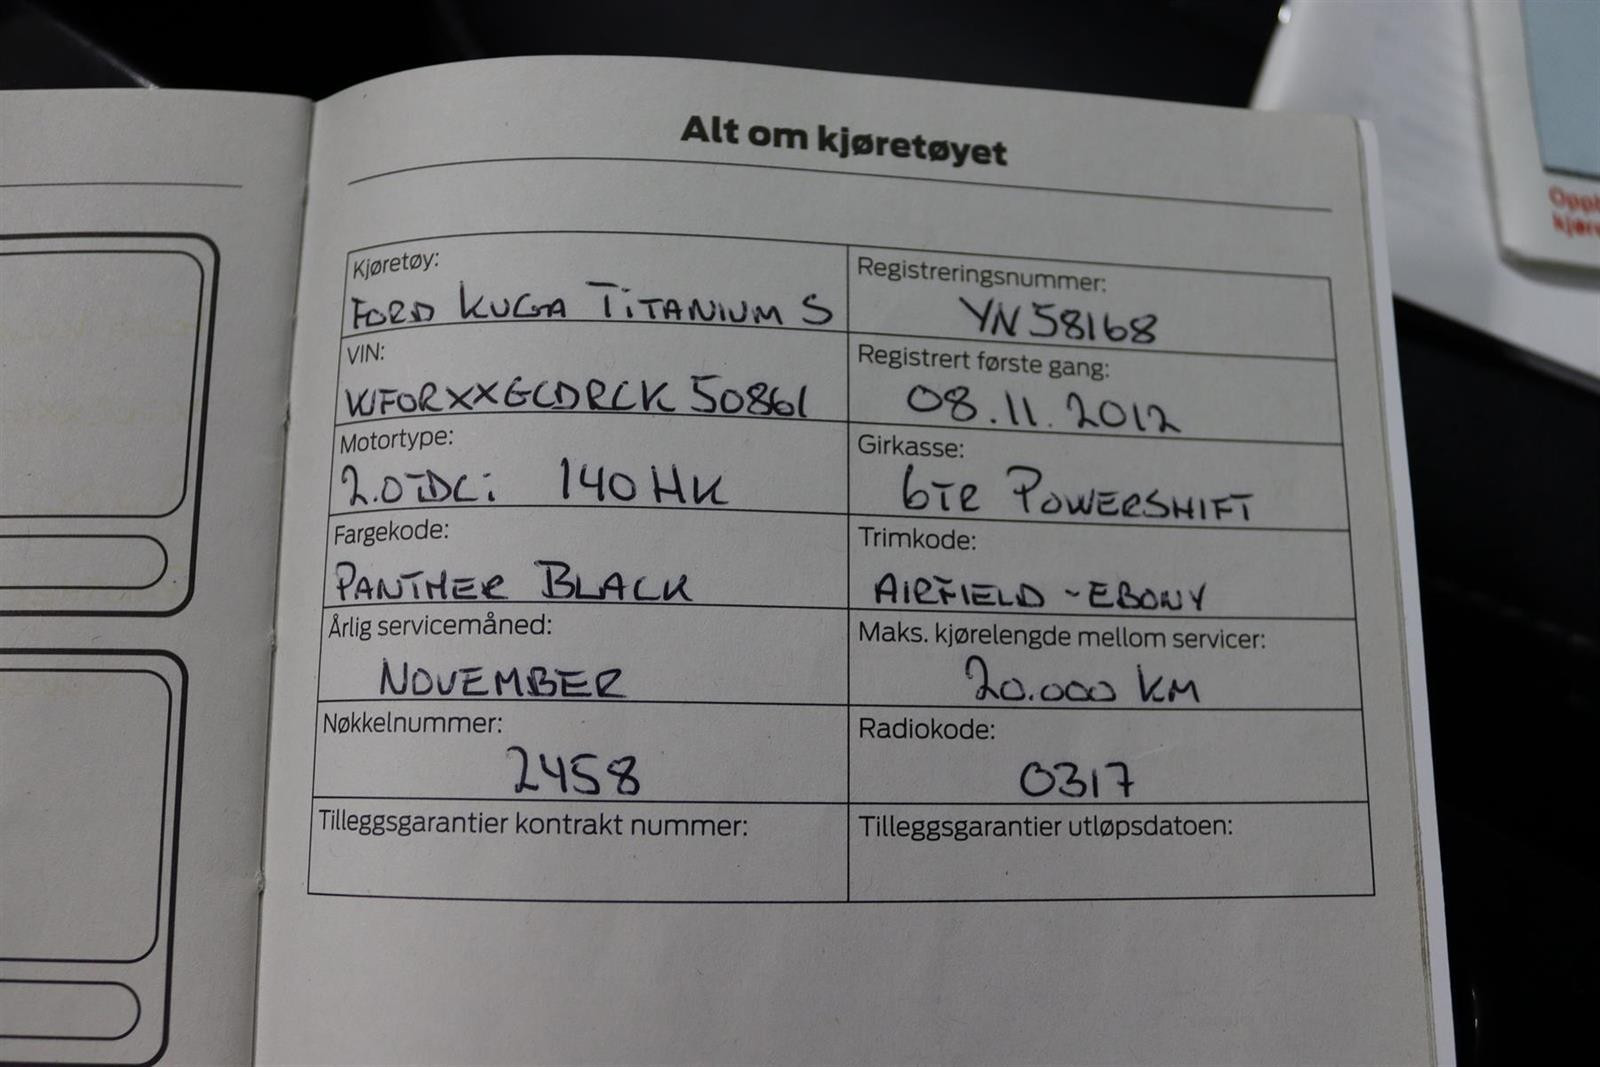 Alt om kjøretøyet
Kjøretøy:
FORD KUGA TITANIUM S
Registreringsnummer:
YN 58168
VIN:
WFORXXGCDRCK 50861
Registrert første gang:
08.11.2012
Motortype:
2.0TDCi 140 HK
Girkasse:
6TR POWERSHIFT
Fargekode:
PANTHER BLACK
Trimkode:
AIRFIELD - EBONY
Årlig servicemåned:
NOVEMBER
Maks. kjørelengde mellom servicer:
20.000 KM
Nøkkelnummer:
2458
Radiokode:
0317
Tilleggsgarantier kontrakt nummer:
Tilleggsgarantier utløpsdatoen: